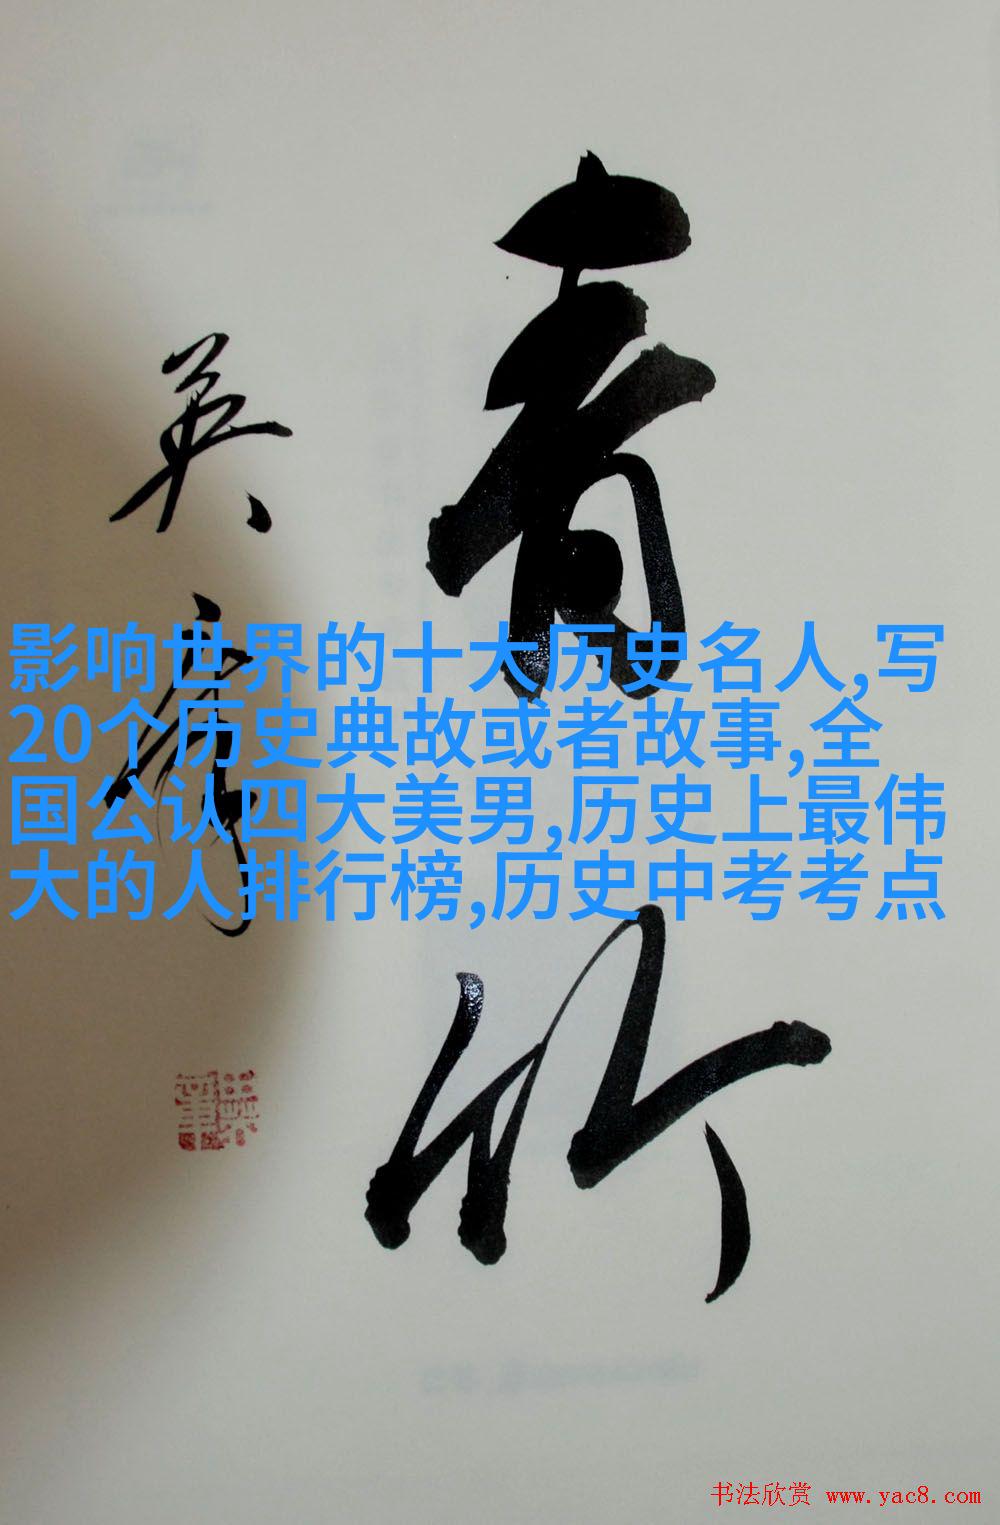 青竹
英彦
影响世界的十大历史名人,写
20个历史典故或者故事,全
国公认四大美男,历史上最伟
大的人排行榜,历史中考考点
书法欣赏 www.yac8.com